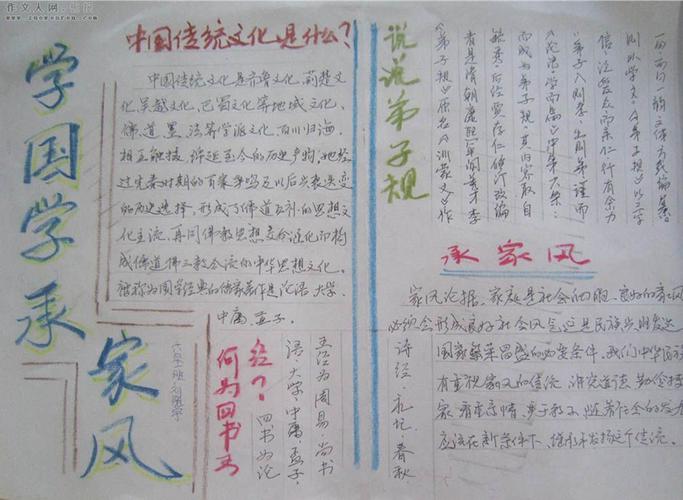 作文人网
学国学承
家风
中国传统文化是什么?
中国传统文化是齐鲁文化、荆楚文
化、吴越文化、巴蜀文化等地域文化、
儒、道、墨、法等学派文化,百川归海,
相互融接,绵延至今的历史产物,她经
过先秦时期的百家争鸣及以后
的历史选择,形成了儒道互补的思想文
化主流,再同佛教思想交合
成儒道佛三教合流的中华思想文化。
被称为国学经典的儒家著作是论语、大学、
中庸、孟子。
何为四书五
经?四书为论
语、大学、中庸、孟子,
五经为周易、尚书
诗经、礼记、春秋
说说弟子规
《弟子规》原名《训蒙文》作
者是清朝康熙年间秀才李
毓秀,后经贾存仁修订改编
而成为弟子规,其内容取自
《论语·学而篇》中第六条:
"弟子入则孝,出则弟,谨而
信,泛爱众而亲仁,行有余力
则以学文。"《弟子规》以三字
一句两句一韵文体
承家风
家庭是社会的细胞,良好的家风
必须会形成良好社会风气,这是民族兴旺发达
国家繁荣昌盛的必要条件,我们中华民族
有重视家风的传统
应该在新条件下,继承和发扬这个传统。